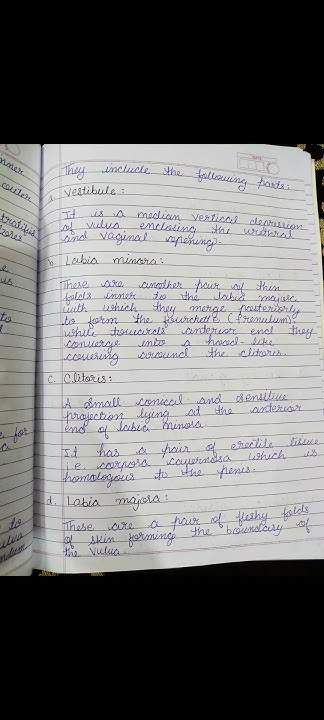 nner
outer
They include the following parts:
a. Vestibule:
It is a median vertical depression
of vulva enclosing the urethral
and vaginal opening.
b. Labia minora:
These are another pair of thin
folds inner to the labia majora
with which they merge posteriorly
to form the fourchette (frenulum)
while towards anterior end they
converge into a hood-like
covering around the clitoris.
c. Clitoris:
A small conical and sensitive
projection lying at the anterior
end of labia minora.
It has a pair of erectile tissue
i.e. corpora cavernosa which is
homologous to the penis.
d. Labia majora:
These are a pair of fleshy folds
of skin forming the boundary of
the vulva